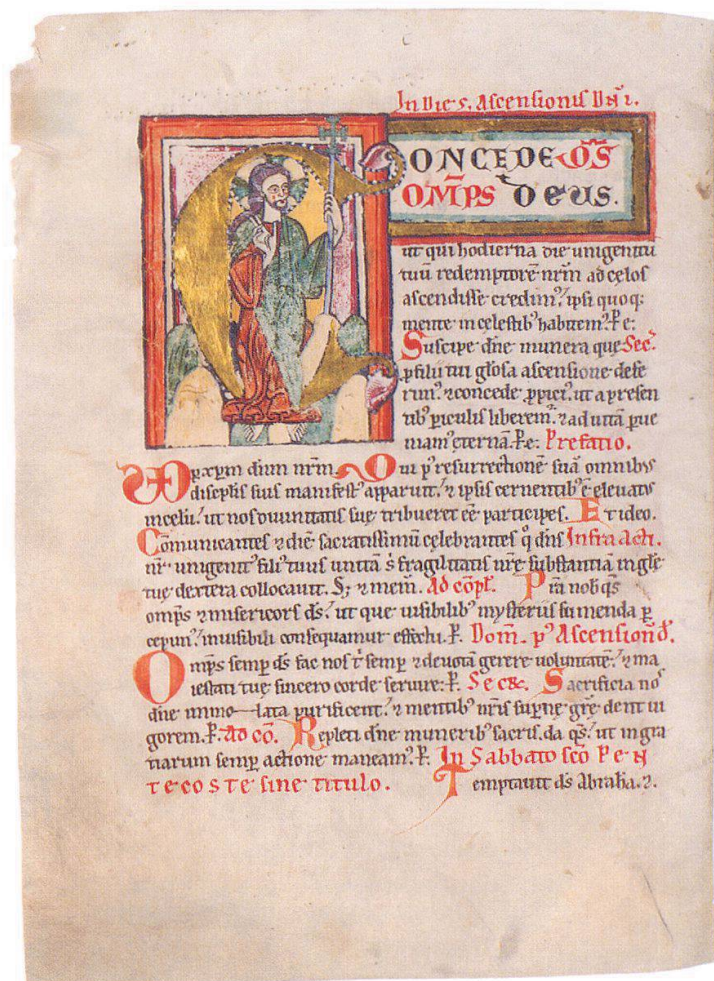 In Die S. Ascensionis Dn̄i.
CONCEDE Q̄S
OM̄PS DEUS.
ut qui hodierna die unigenitū
tuū redemptorē nr̄m ad celos
ascendisse credim᷒. ipsi quoq;
mente in celestib᷒ habitem᷒. P̄e:
Suscipe dn̄e munera que Sec̄.
ꝓ filii tui gl̄osa ascensione defe
rim᷒. ⁊ concede ꝓpici᷒. ut a presen
tib᷒ piculis liberem᷒. ⁊ ad uitā ꝑue
niam᷒ ęternā. P̄e: Prefatio.
ꝑ xp̄m dn̄m nr̄m Qui p᷒ resurrectionē suā omnibus
discipl̄is suis manifest᷒ apparuit. ⁊ ipsis cernentib᷒ ē eleuatus
in celū. ut nos diuinitatis suę tribueret eē participes. Et ideo.
Com̄unicantes ⁊ diē sacratissimū celebrantes q̊ dn̄s Infra Acti.
nr̄ unigenit᷒ fili᷒ tuus unitā s᷒ fragilitatis nr̄e substantiā in gl̄ę
tuę dextera collocauit. S; ⁊ mem̄. Ad cōpl̄. P̄ta nob᷒ q̄s
om̄ps ⁊ misericors d̄s. ut que uisibilib᷒ mysteriis sumenda ꝑ
cepim᷒. inuisibili consequamur effectu. P̄. Dom̄. p᷒ Ascensionē.
Om̄ps semp̄ d̄s fac nos t᷒ semp̄ ⁊ deuotā gerere uoluntatē. ⁊ ma
iestati tuę sincero corde seruire. P̄. Secr̄. Sacrificia nos
dn̄e inmo lata purificent. ⁊ mentib᷒ nr̄is supnę gr̄e dent ui
gorem. P̄. Ad cō. Repleti dn̄e munerib᷒ sacris. da q̄s. ut in gra
tiarum semp̄ actione maneam᷒. P̄. In Sabbato sc̄o Pen
tecoste sine titulo. Temptauit d̄s Abraha. ⁊.